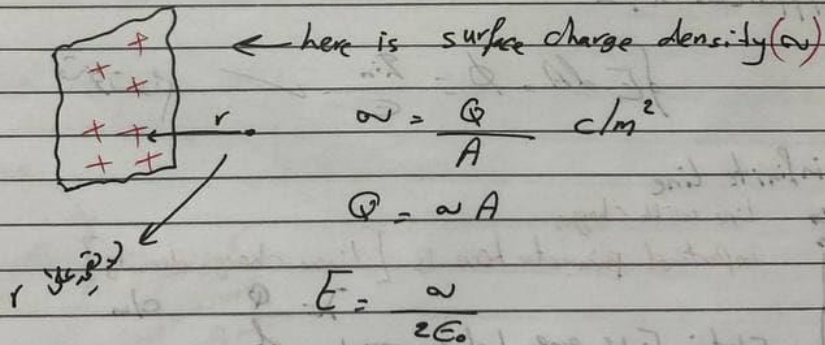 ← here is surface charge density (σ)
r
σ = Q / A c/m²
Q = σ A
r
E = σ / 2ε₀